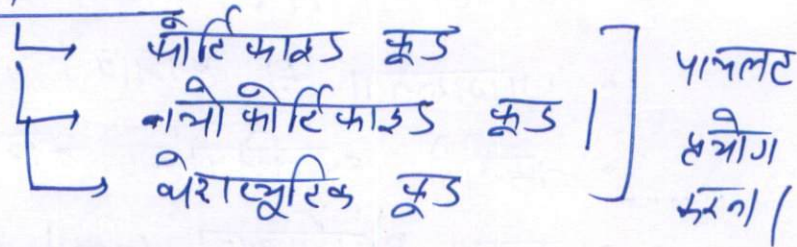 फोर्टिफाइड फूड
बायो फोर्टिफाइड फूड
थेराप्यूटिक फूड
पायलट
प्रयोग
करना।